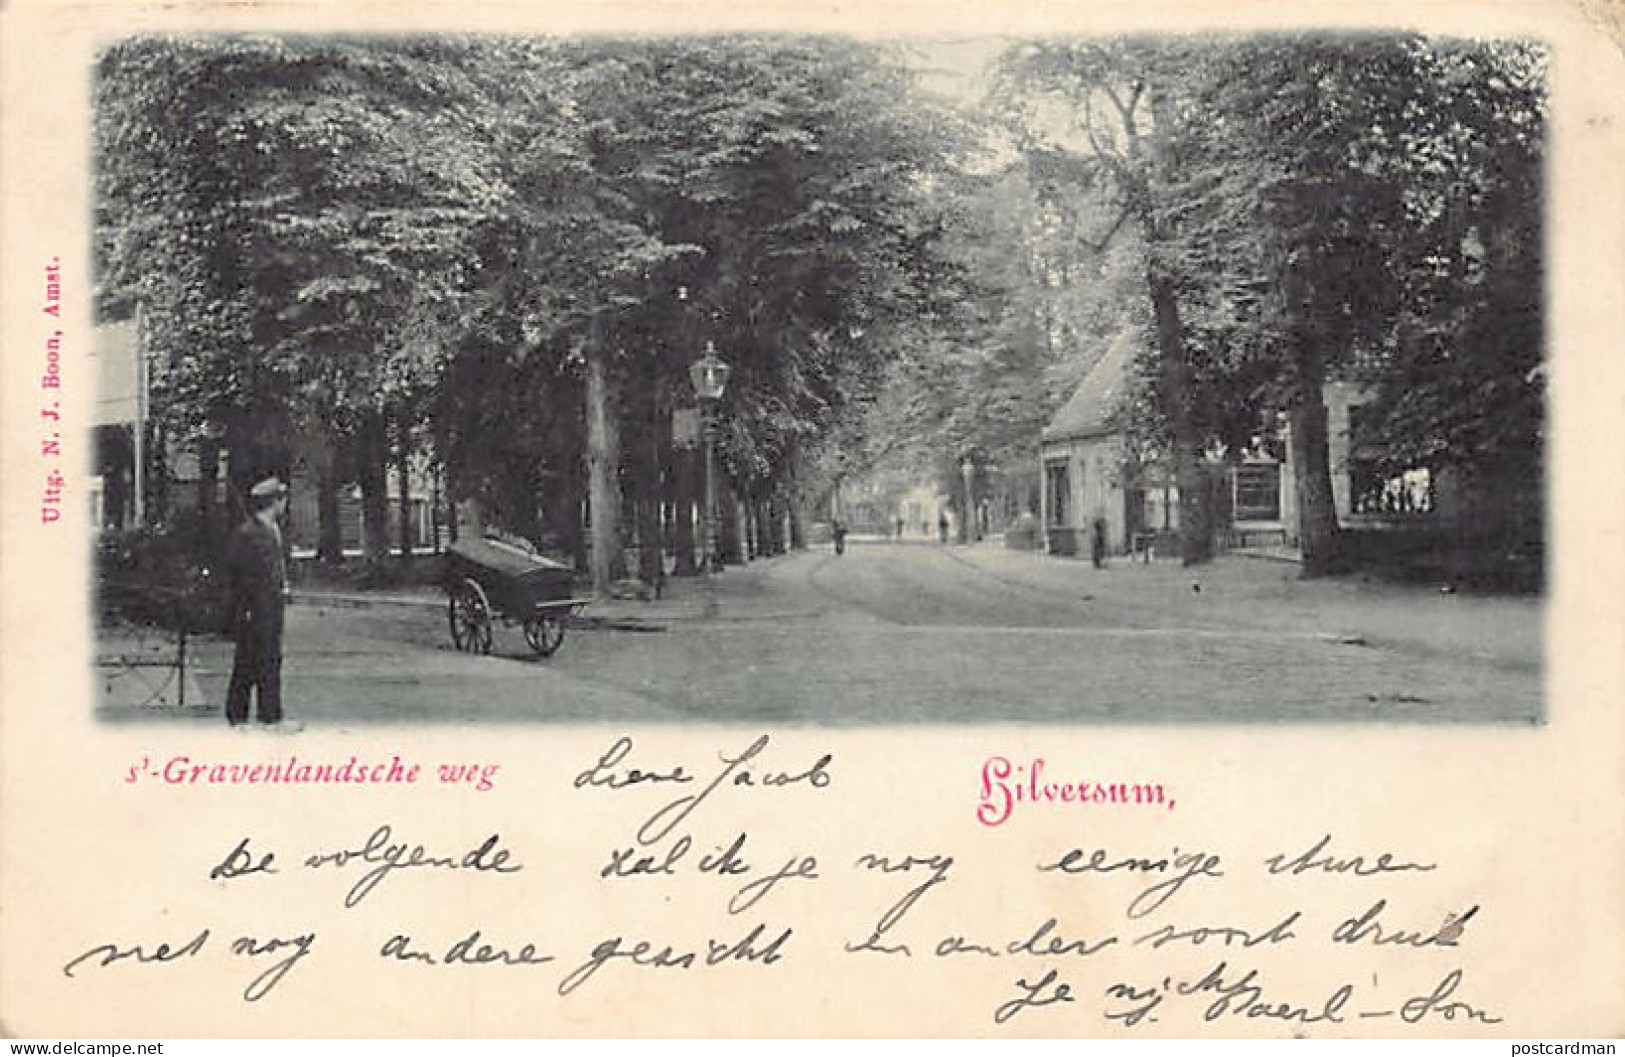 Uitg. N. J. Boon, Amst.
s'-Gravenlandsche weg
Lieve Jacob
Hilversum,
De volgende zal ik je nog eenige sturen
met nog andere gezicht en ander soort druk
Je nicht
www.delcampe.net
postcardman